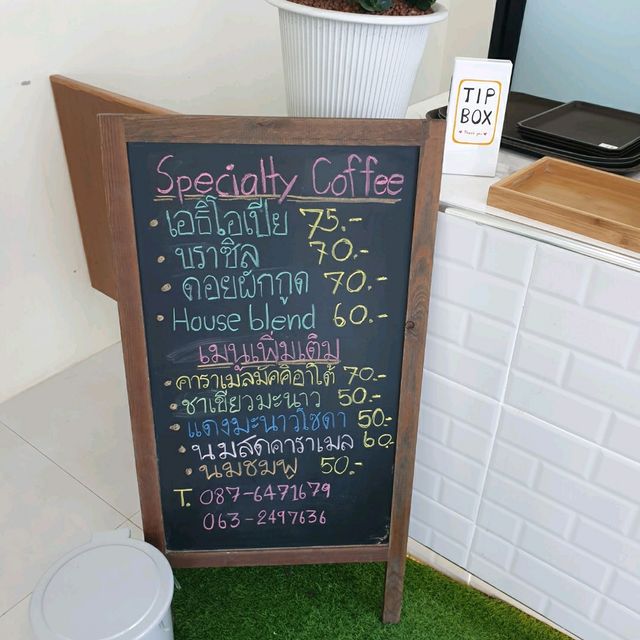 TIP
BOX
Thank you
Specialty Coffee
• เอธิโอเปีย 75.-
• บราซิล 70.-
• ดอยผักกูด 70.-
• House blend 60.-
เมนูเพิ่มเติม
• คาราเมลมัคคิอาโต้ 70.-
• ชาเขียวมะนาว 50.-
• แดงมะนาวโซดา 50.-
• นมสดคาราเมล 60.-
• นมชมพู 50.-
T. 087-6471679
063-2497636